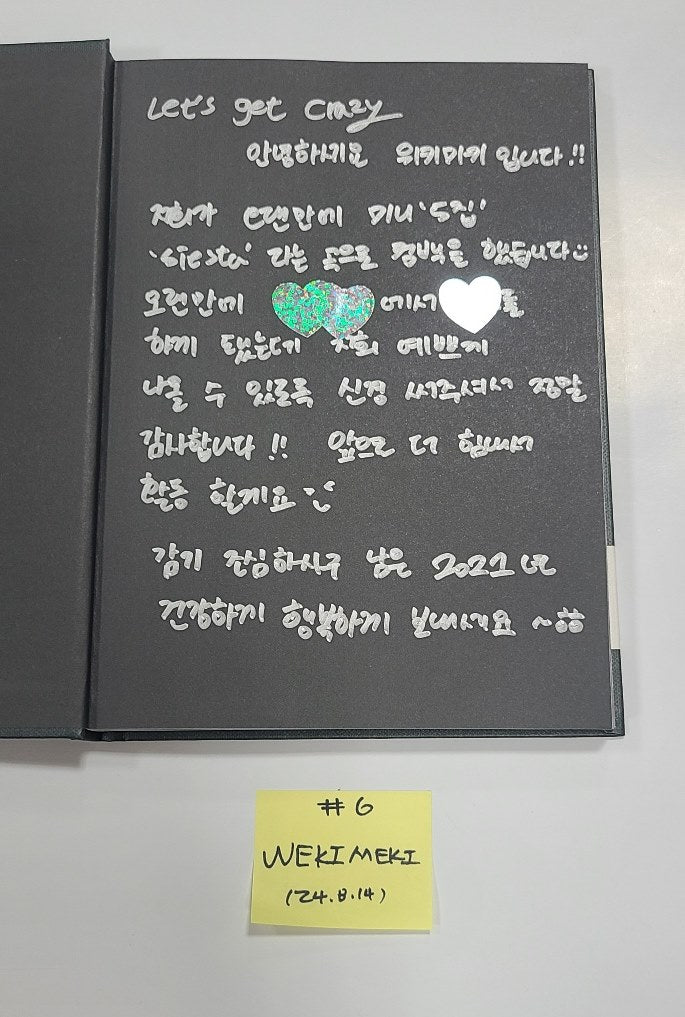 Let's get crazy
안녕하세요 위키미키 입니다!!
저희가 1년만에 미니 '5집'
'siesta' 라는 곡으로 컴백을 했습니다
오랜만에 에서 를
하게 됐는데 저희 예쁘게
나올 수 있도록 신경 써주셔서 정말
감사합니다!! 앞으로 더 힘내서
활동 할게요
감기 조심하시구 남은 2021년
건강하게 행복하게 보내세요 ~
#6
WEKI MEKI
(24.8.14)